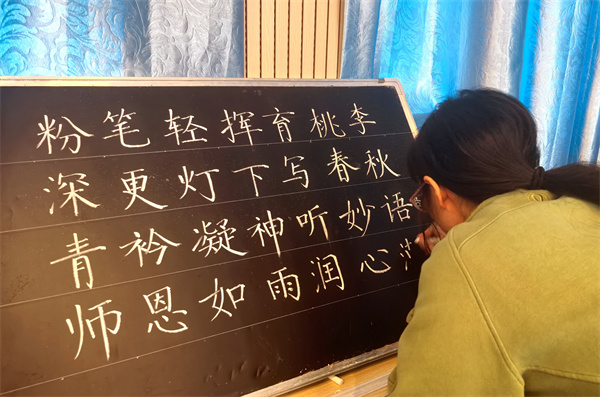 粉笔轻挥育桃李
深更灯下写春秋
青衿凝神听妙语
师恩如雨润心